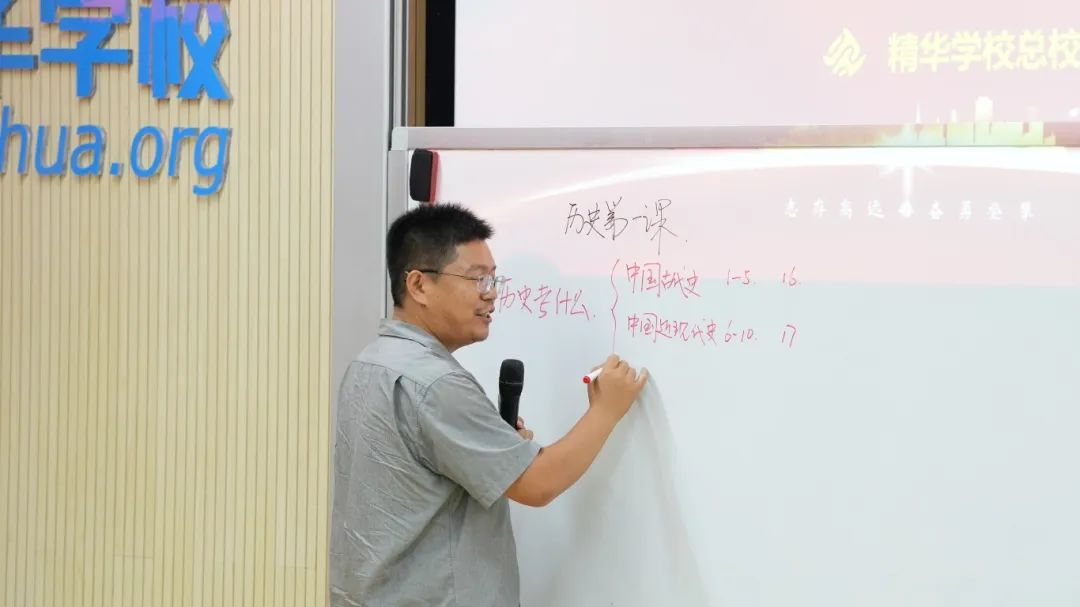 华学校
hua.org
精华学校总校
志存高远 奋勇登攀
历史第一课.
历史考什么.
中国古代史 1-5. 16.
中国近现代史 6-10. 17